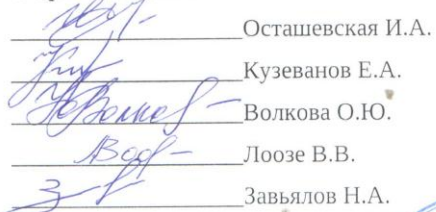 Осташевская И.А.
Кузеванов Е.А.
Волкова О.Ю.
Лоозе В.В.
Завьялов Н.А.